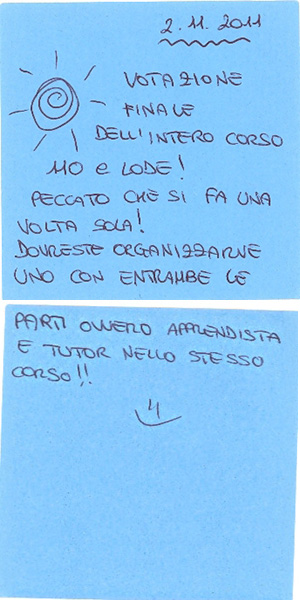 2.11.2011
VOTAZIONE
FINALE
DELL'INTERO CORSO
110 e LODE!
PECCATO CHE SI FA UNA
VOLTA SOLA!
DOVRESTE ORGANIZZARNE
UNO CON ENTRAMBE LE
PARTI OVVERO APPRENDISTA
E TUTOR NELLO STESSO
CORSO!!